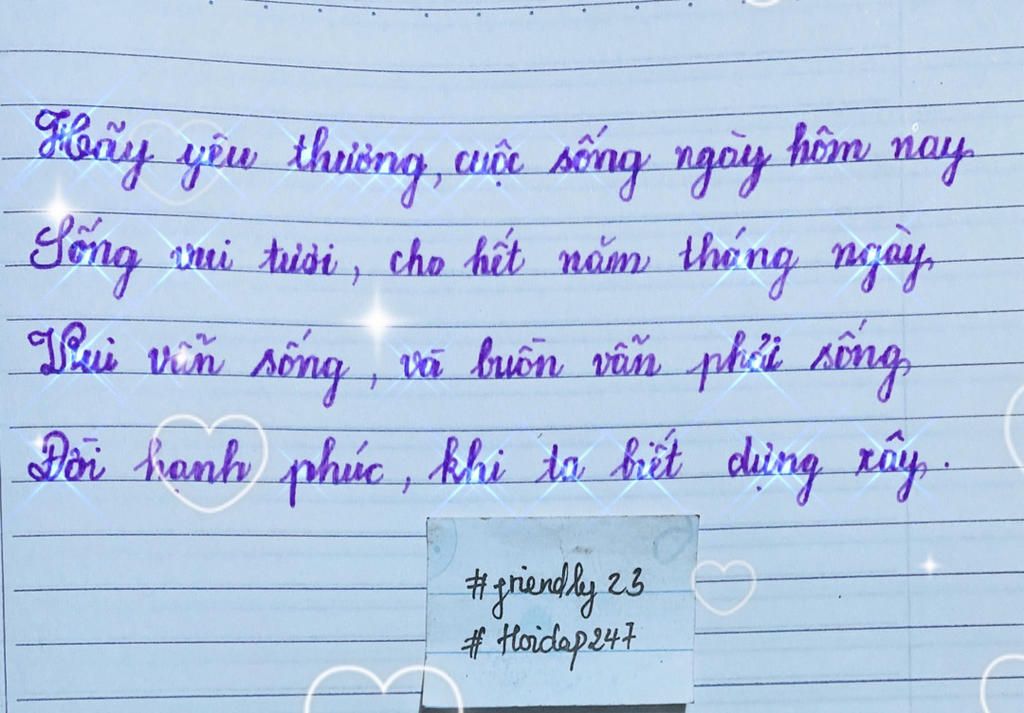 Hãy yêu thương, cuộc sống ngày hôm nay
Sống vui tươi, cho hết năm tháng ngày
Vui vẫn sống, và buồn vẫn phải sống
Đời hạnh phúc, khi ta biết dựng xây.
#friendly 23
# Hoidap247